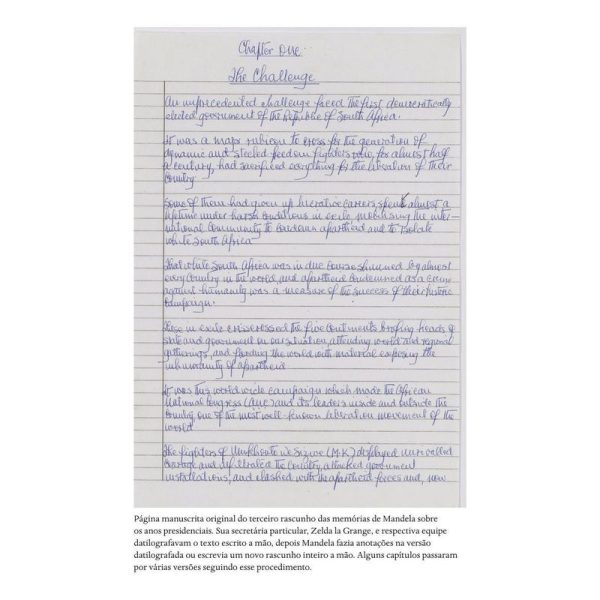 Chapter One
The Challenge
An unprecedented challenge faced the first democratically
elected government of the Republic of South Africa.
It was a major rubicon to cross for the generation of
dynamic and steeled freedom fighters who, for almost half
a century, had sacrificed everything for the liberation of their
country.
Some of them had given up lucrative careers spent almost a
lifetime under harsh conditions in exile, mobilising the inter-
national community to condemn apartheid and to isolate
white South Africa
That white South Africa was in due course shunned by almost
every country in the world, and apartheid condemned as a crime
against humanity was a measure of the success of their historic
campaign.
Those in exile crisscrossed the five continents briefing heads of
state and government on our situation, attending world and regional
gatherings, and flooding the world with material exposing the
inhumanity of apartheid.
It was this world wide campaign which made the African
National Congress (ANC) and its leaders inside and outside the
country one of the most well-known liberation movement of the
world.
The fighters of Umkhonto we Sizwe (MK) displayed unrivalled
courage and infiltrated the country, attacked government
installations, and clashed with the apartheid forces and, now
Página manuscrita original do terceiro rascunho das memórias de Mandela sobre
os anos presidenciais. Sua secretária particular, Zelda la Grange, e respectiva equipe
datilografavam o texto escrito a mão, depois Mandela fazia anotações na versão
datilografada ou escrevia um novo rascunho inteiro a mão. Alguns capítulos passaram
por várias versões seguindo esse procedimento.